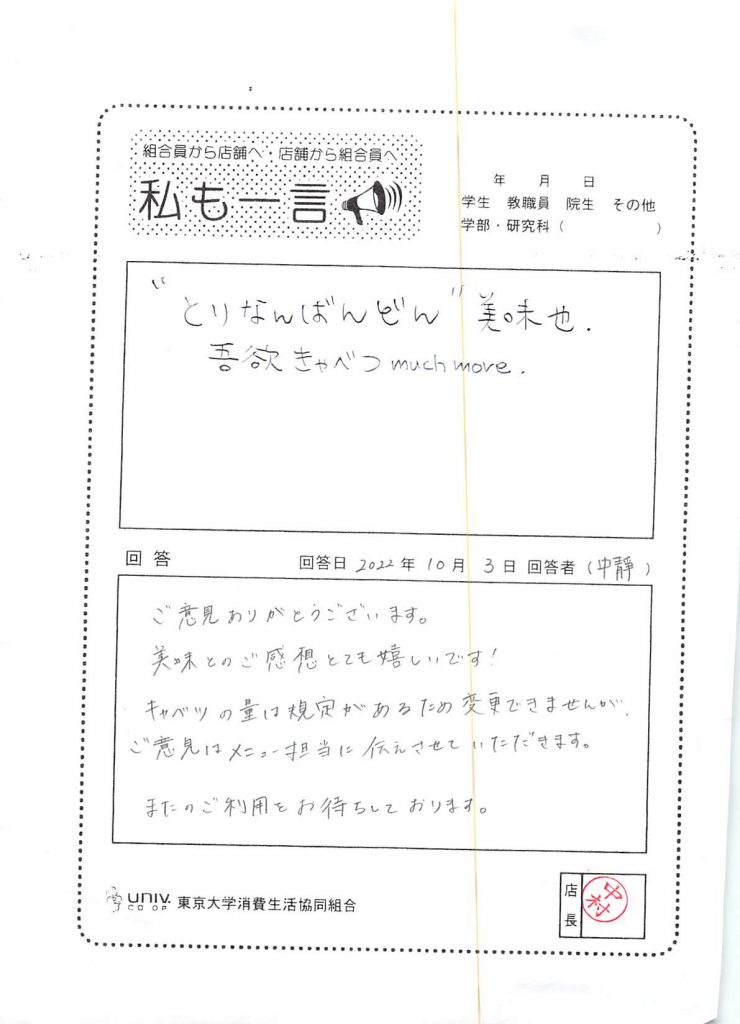 組合員から店舗へ・店舗から組合員へ
私も一言
年 月 日
学生 教職員 院生 その他
学部・研究科( )
"とりなんばんどん" 美味也.
吾欲きゃべつ much more.
回答 回答日 2022年 10月 3日 回答者(中靜)
ご意見ありがとうございます。
美味とのご感想とても嬉しいです!
キャベツの量は規定があるため変更できませんが、
ご意見はメニュー担当に伝えさせていただきます。
またのご利用をお待ちしております。
UNIV. CO-OP 東京大学消費生活協同組合
店長 中村